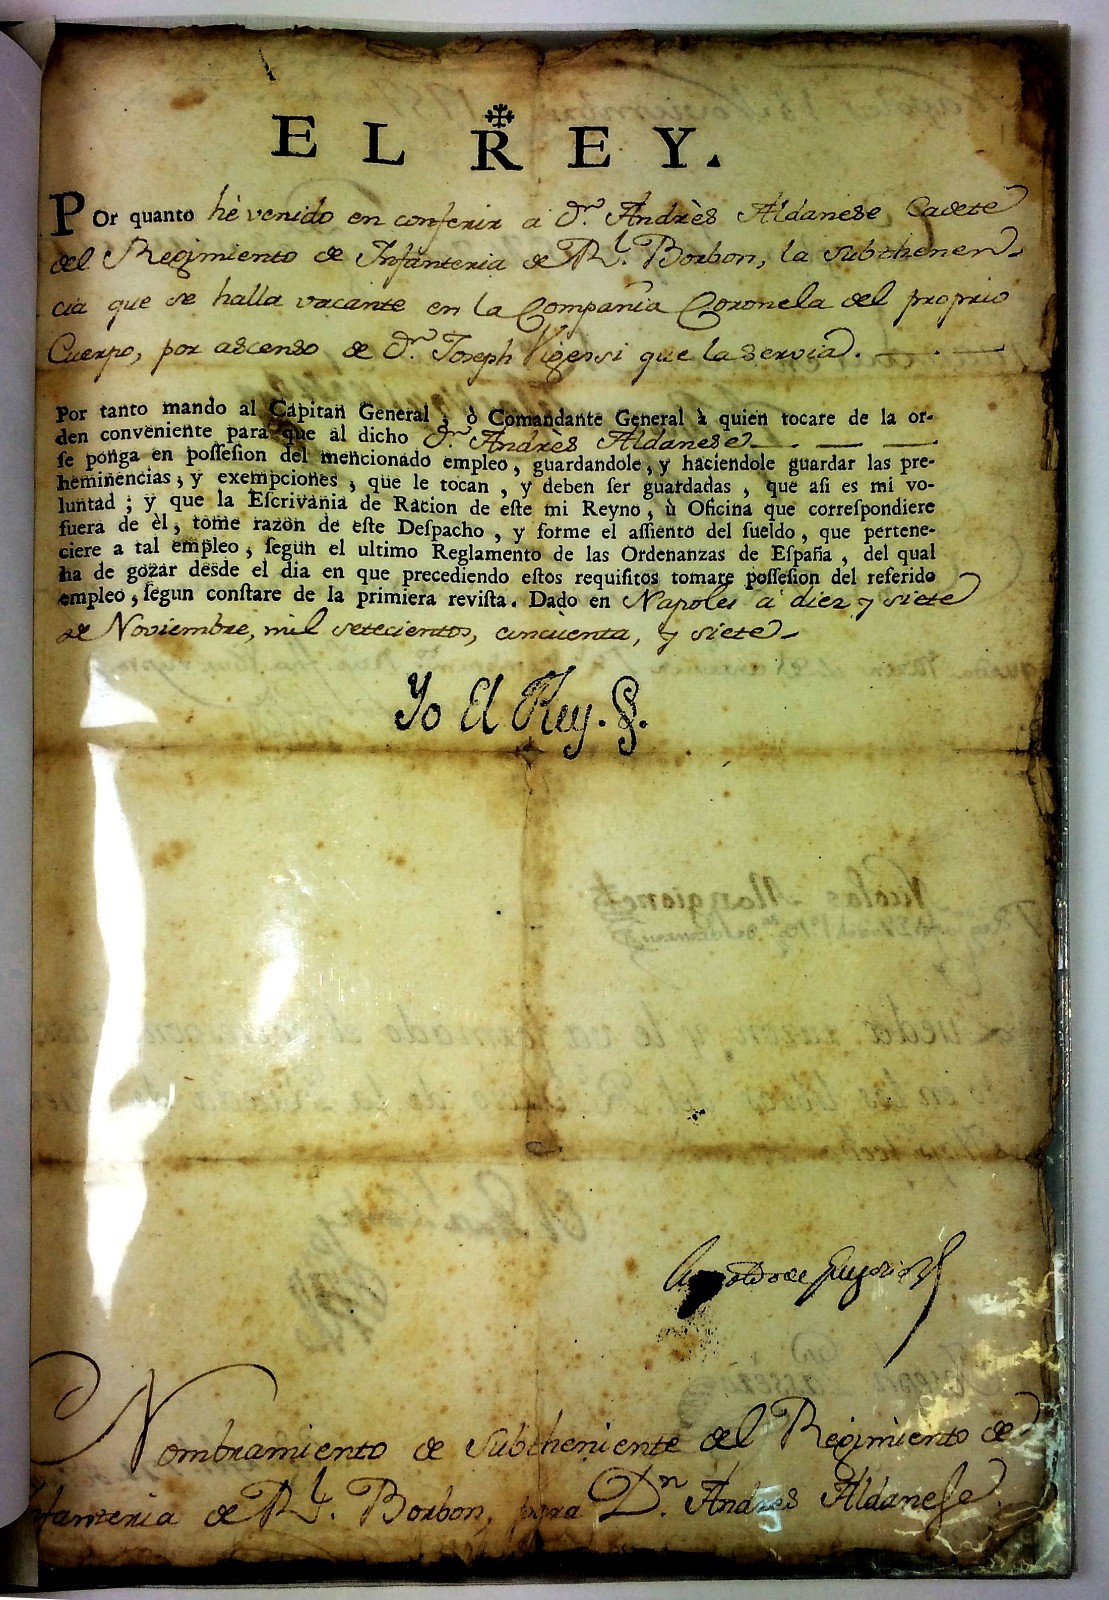 EL REY.
POr quanto hè venido en conferir à Dn. Andrès Aldanese Cadete
del Regimiento de Infanteria de Rl. Borbon, la subthenen-
cia que se halla vacante en la Compañia Coronela del proprio
Cuerpo, por ascenso de Dn. Joseph Vigensi que la servia.
Por tanto mando al Capitan General, ò Comandante General à quien tocare de la or-
den conveniente para que al dicho Dn. Andrès Aldanese
ſe ponga en poſſeſion del mencionado empleo, guardandole, y haciendole guardar las pre-
heminencias, y exempciones, que le tocan, y deben ſer guardadas, que aſi es mi vo-
luntad; y que la Eſcrivania de Racion de eſte mi Reyno, ù Oficina que correſpondiere
fuera de èl, tome razon de eſte Deſpacho, y forme el aſſiento del ſueldo, que pertene-
ciere a tal empleo, ſegun el ultimo Reglamento de las Ordenanzas de Eſpaña, del qual
ha de gozar desde el dia en que precediendo eſtos requiſitos tomare poſſeſion del referido
empleo, ſegun conſtare de la primiera reviſta. Dado en Napoles à diez y siete
de Noviembre, mil setecientos, cincuenta, y siete
Yo El Rey. §.
Nombramiento de subtheniente del Regimiento de
Infanteria de Rl. Borbon, para Dn. Andres Aldaneſe.